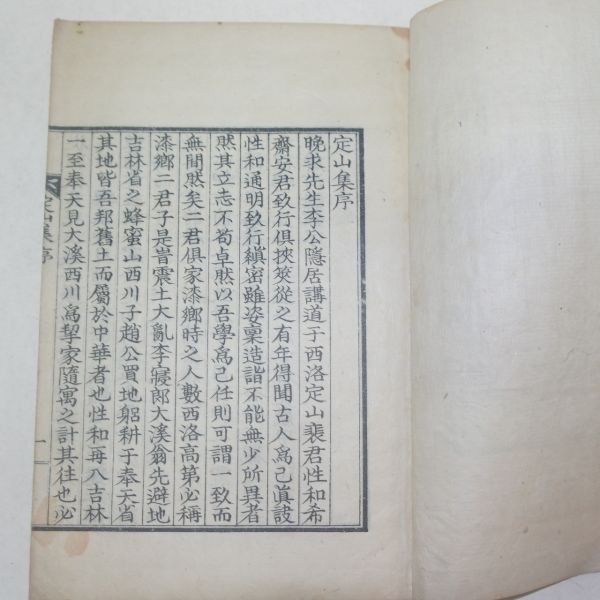 定山集序
晚求先生李公隱居講道于西洛定山裴君性和希
齋安君致行俱挾筴從之有年得聞古人爲己眞諦
性和通明致行縝密雖姿稟造詣不能無少所異者
然其立志不苟卓然以吾學爲己任則可謂一致而
無間然矣二君俱家漆鄉時之人數西洛高第必稱
漆鄉二君子是嵵震土大亂李寢郎大溪翁先避地
吉林省之蜂蜜山西川子趙公買地躬耕于奉天省
其地皆吾邦舊土而屬於中華者也性和再入吉林
一至奉天見大溪西川爲挈家隨寓之計其往也必
定山集序
一